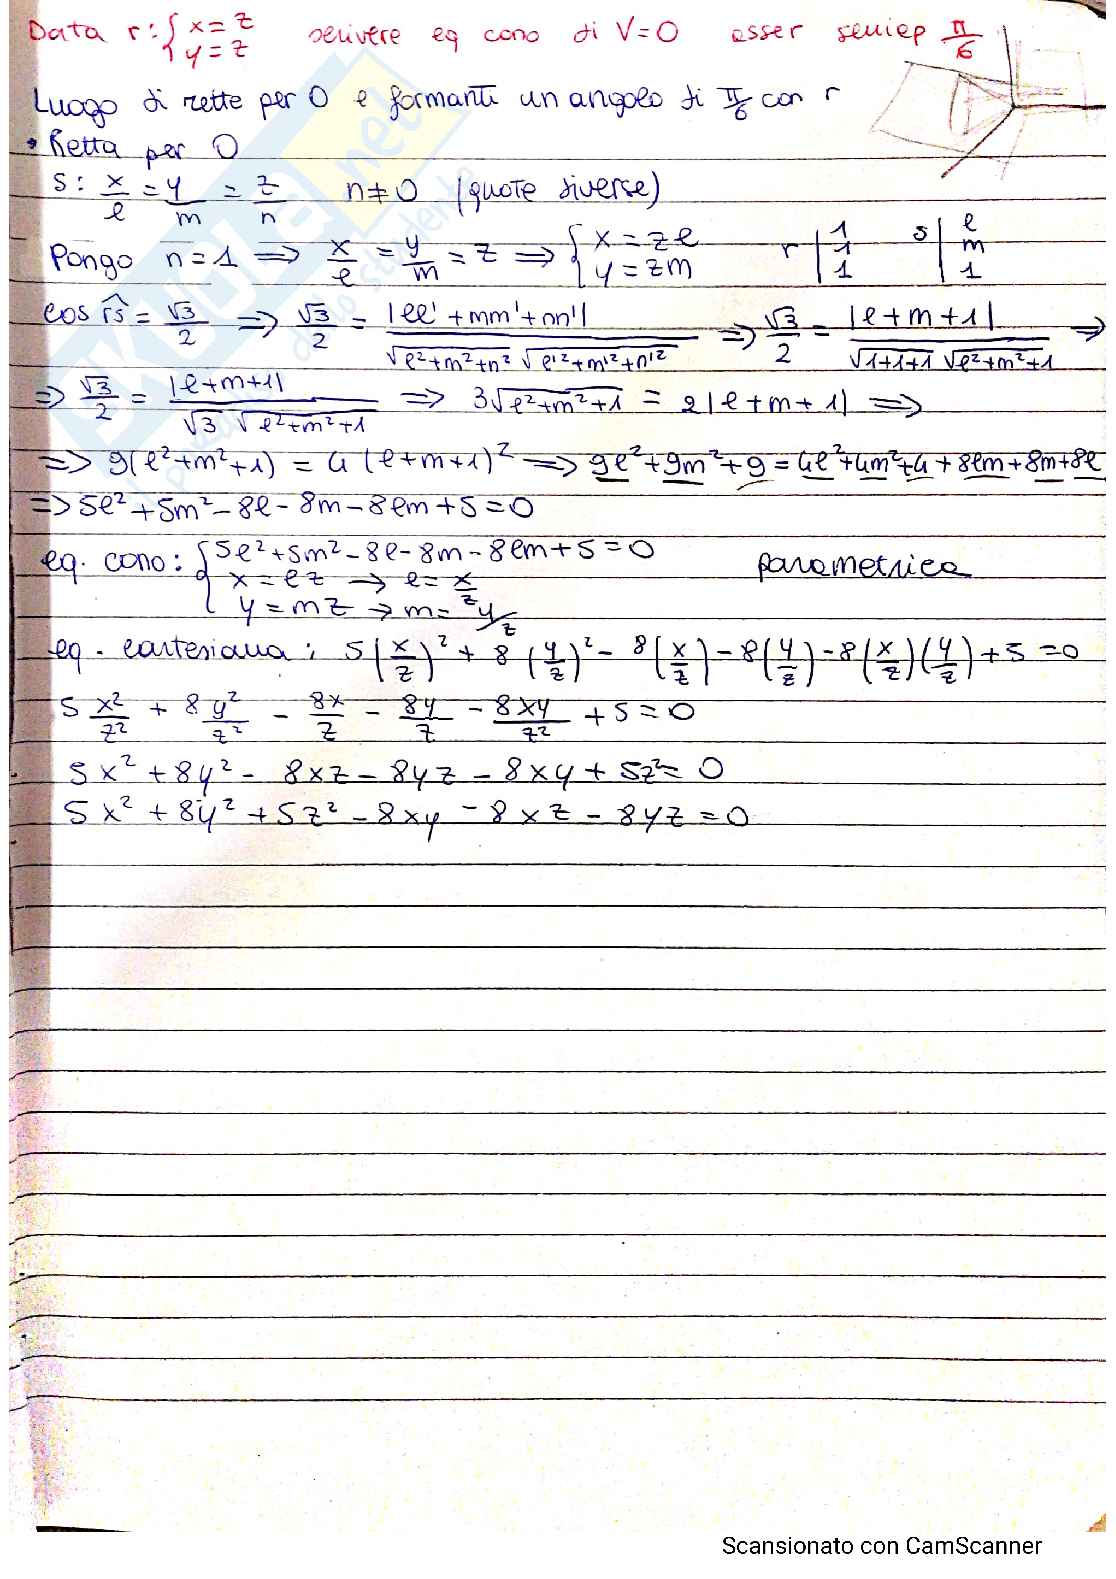 Data r: { x = z y = z scrivere eq cono di V=0 asser semiap π/6
Luogo di rette per O e formanti un angolo di π/6 con r
• Retta per O
s: x/l = y/m = z/n n ≠ 0 (quote diverse)
Pongo n = 1 ⟹ x/l = y/m = z ⟹ { x = zl y = zm r | 1 1 1 s | l m 1
cos r̂s = √3/2 ⟹ √3/2 = |ll' + mm' + nn'| / √l²+m²+n² √l'²+m'²+n'² ⟹ √3/2 = |l+m+1| / √1+1+1 √l²+m²+1 ⟹
⟹ √3/2 = |l+m+1| / √3 √l²+m²+1 ⟹ 3√l²+m²+1 = 2|l+m+1| ⟹
⟹ 9(l²+m²+1) = 4(l+m+1)² ⟹ 9l²+9m²+9 = 4l²+4m²+4+8lm+8m+8l
⟹ 5l²+5m²-8l-8m-8lm+5=0
eq. cono: { 5l²+5m²-8l-8m-8lm+5=0 parametrica
x = lz → l = x/z
y = mz → m = y/z
eq. cartesiana: 5(x/z)² + 8(y/z)² - 8(x/z) - 8(y/z) - 8(x/z)(y/z) + 5 = 0
5 x²/z² + 8 y²/z² - 8x/z - 8y/z - 8xy/z² + 5 = 0
5x² + 8y² - 8xz - 8yz - 8xy + 5z² = 0
5x² + 8y² + 5z² - 8xy - 8xz - 8yz = 0
Scansionato con CamScanner